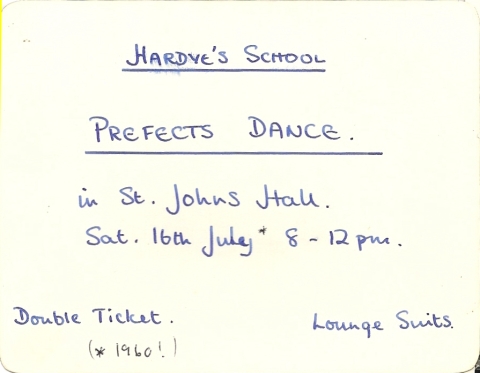 HARDYE'S SCHOOL
PREFECTS DANCE.
in St. Johns Hall.
Sat. 16th July* 8 - 12 pm.
Double Ticket.
Lounge Suits.
(* 1960!)